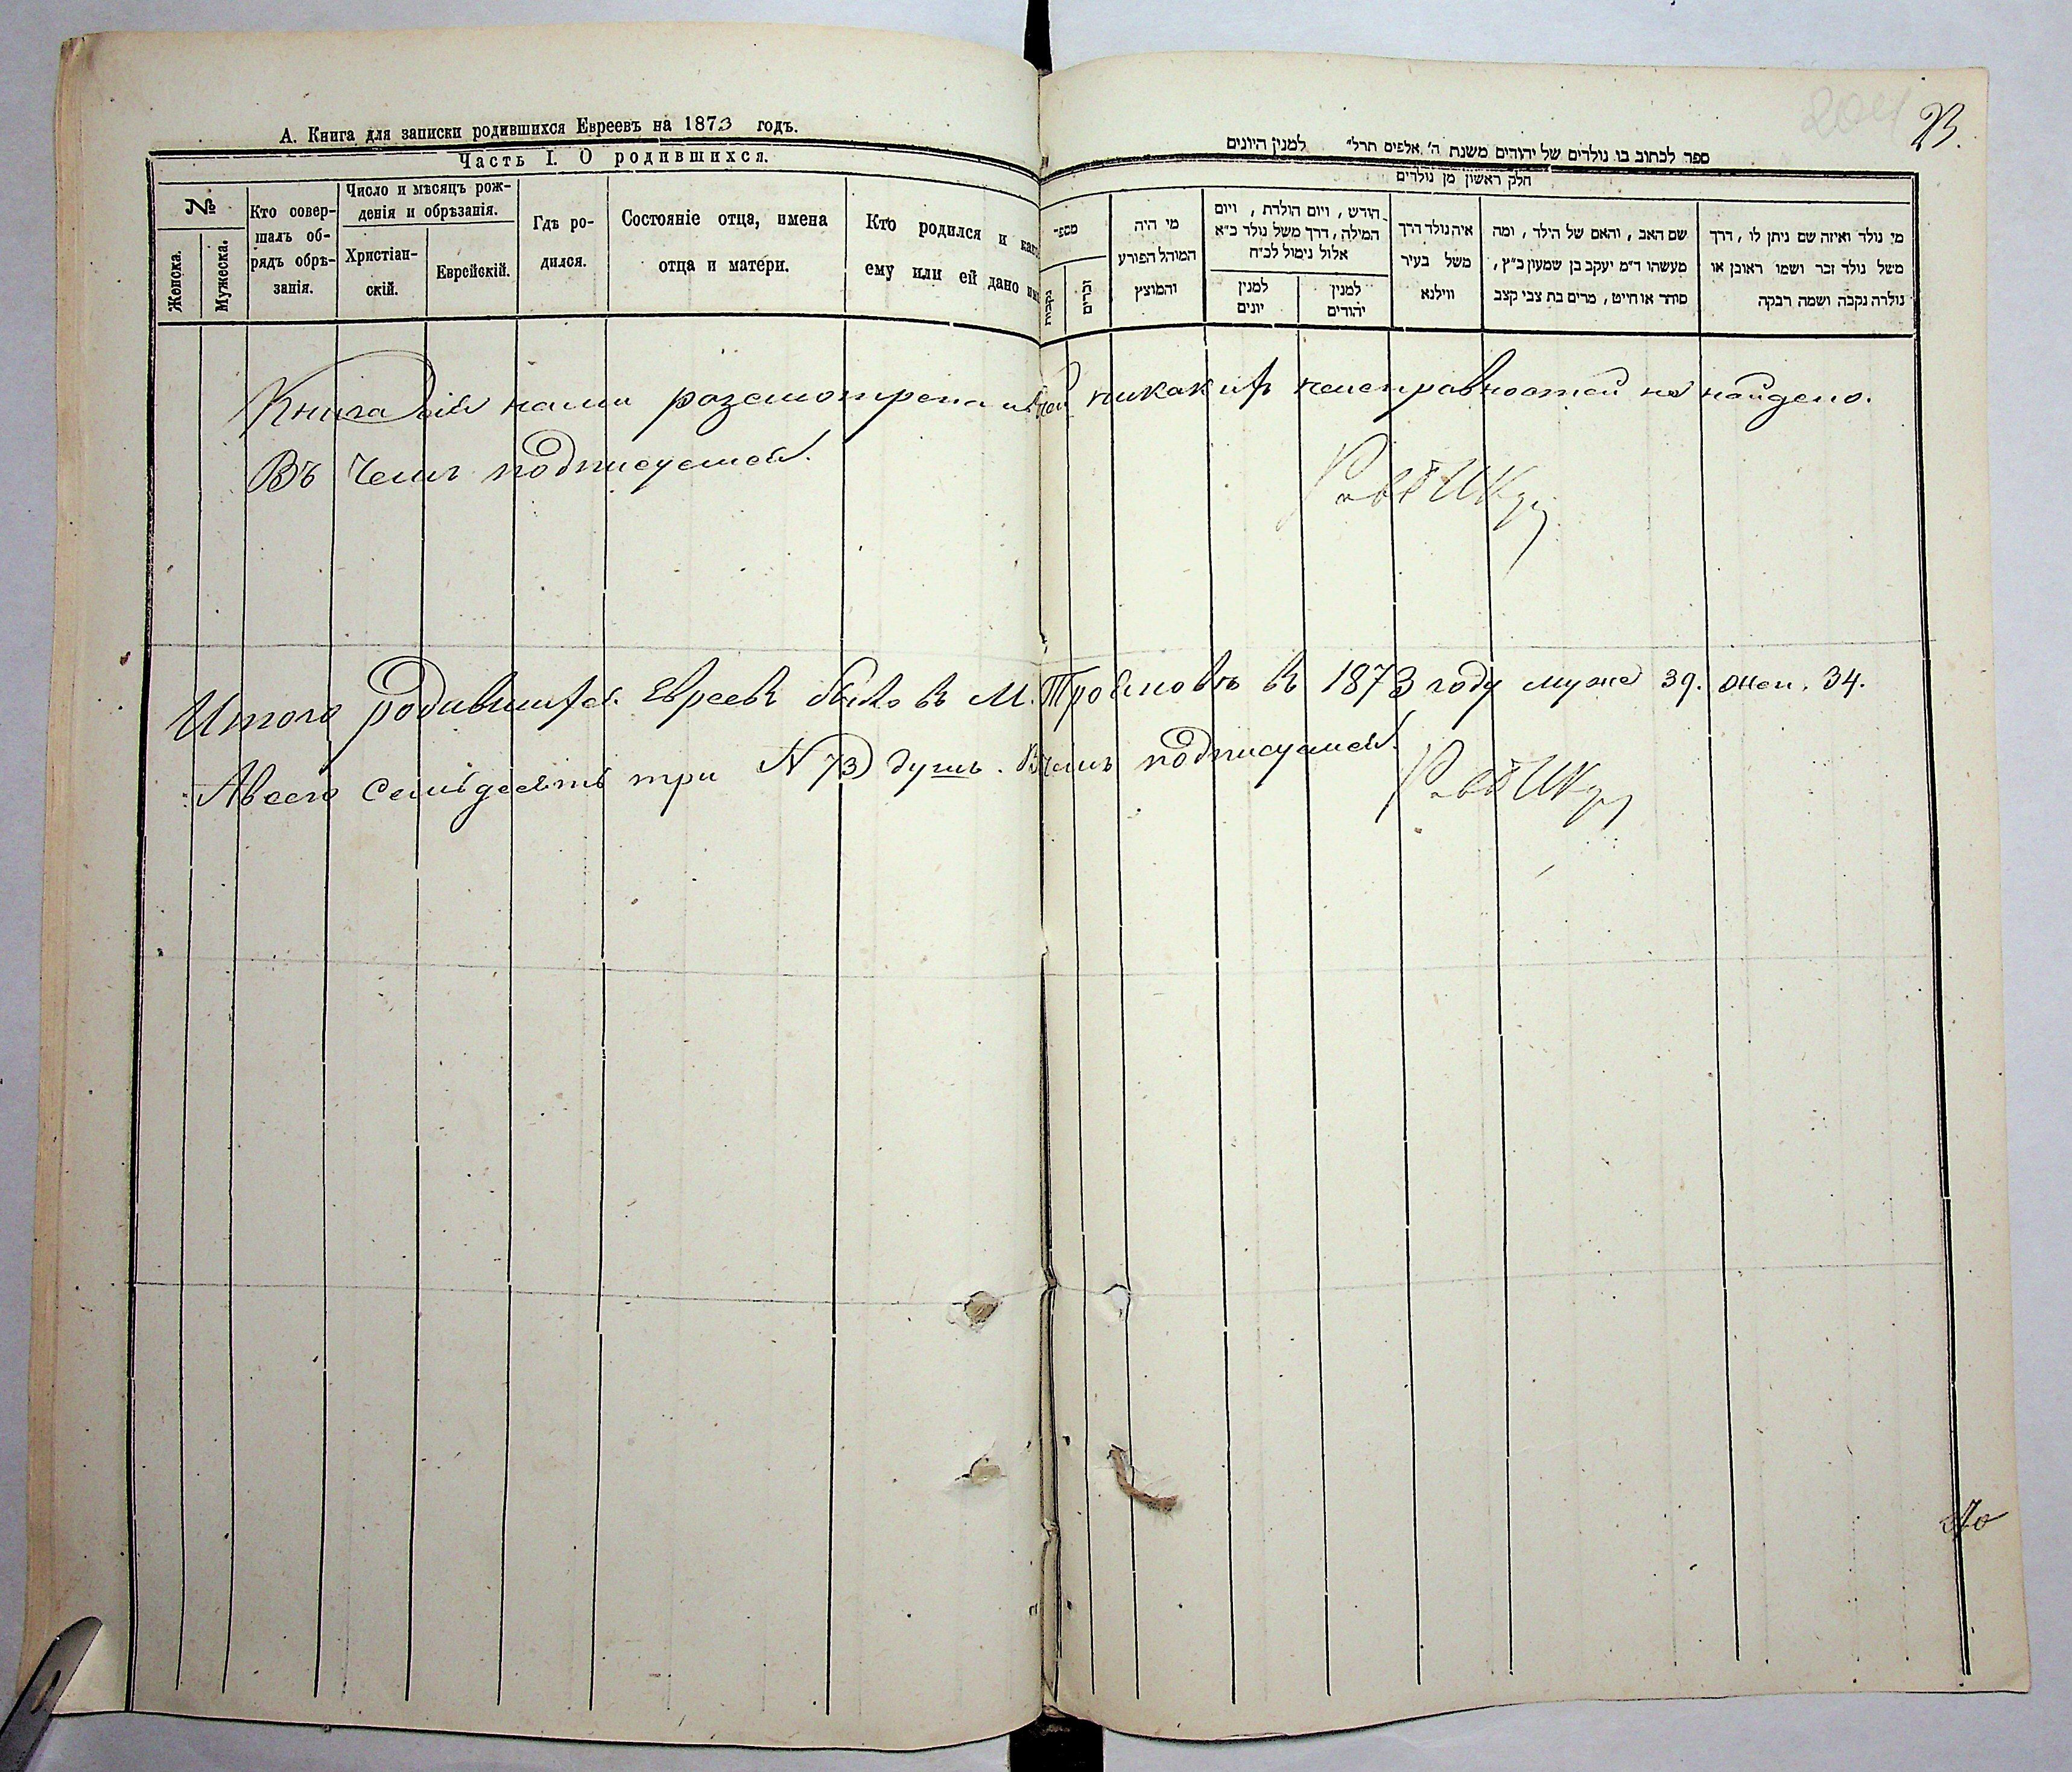 А. Книга для записки родившихся Евреевъ на 1873 годъ.
Часть I. О родившихся.
№
Женска.
Мужеска.
Кто совер-
шалъ об-
рядъ обрѣ-
занія.
Число и мѣсяцъ рож-
денія и обрѣзанія.
Христіан-
скій.
Еврейскій.
Гдѣ ро-
дился.
Состояніе отца, имена
отца и матери.
Кто родился и как
ему или ей дано им
204
23.
ספר לכתוב בו נולדים של יהודים משנת ה' אלפים תרל" למנין היונים
חלק ראשון מן נולדים
מספר
נקבות
זכרים
מי היה
המוהל הפורע
והמוצץ
חודש, ויום הולדת, ויום
המילה, דרך משל נולד כ"א
אלול נימול לכ"ח
למנין
יונים
למנין
יהודים
איה נולד דרך
משל בעיר
ווילנא
שם האב, והאם של הילד, ומה
מעשהו ד"מ יעקב בן שמעון כ"ץ,
סוחר או חייט, מרים בת צבי קצב
מי נולד ואיזה שם ניתן לו, דרך
משל נולד זכר ושמו ראובן או
נולדה נקבה ושמה רבקה
Книга сія нами разсмотрена и никакихъ неисправностей не найдено.
Въ чемъ подписуемся.
Итого родившихся Евреевъ было въ М. Трояновѣ въ 1873 году муже 39. жен. 34.
А всего семьдесятъ три N 73 душъ. В чемъ подписуемся.